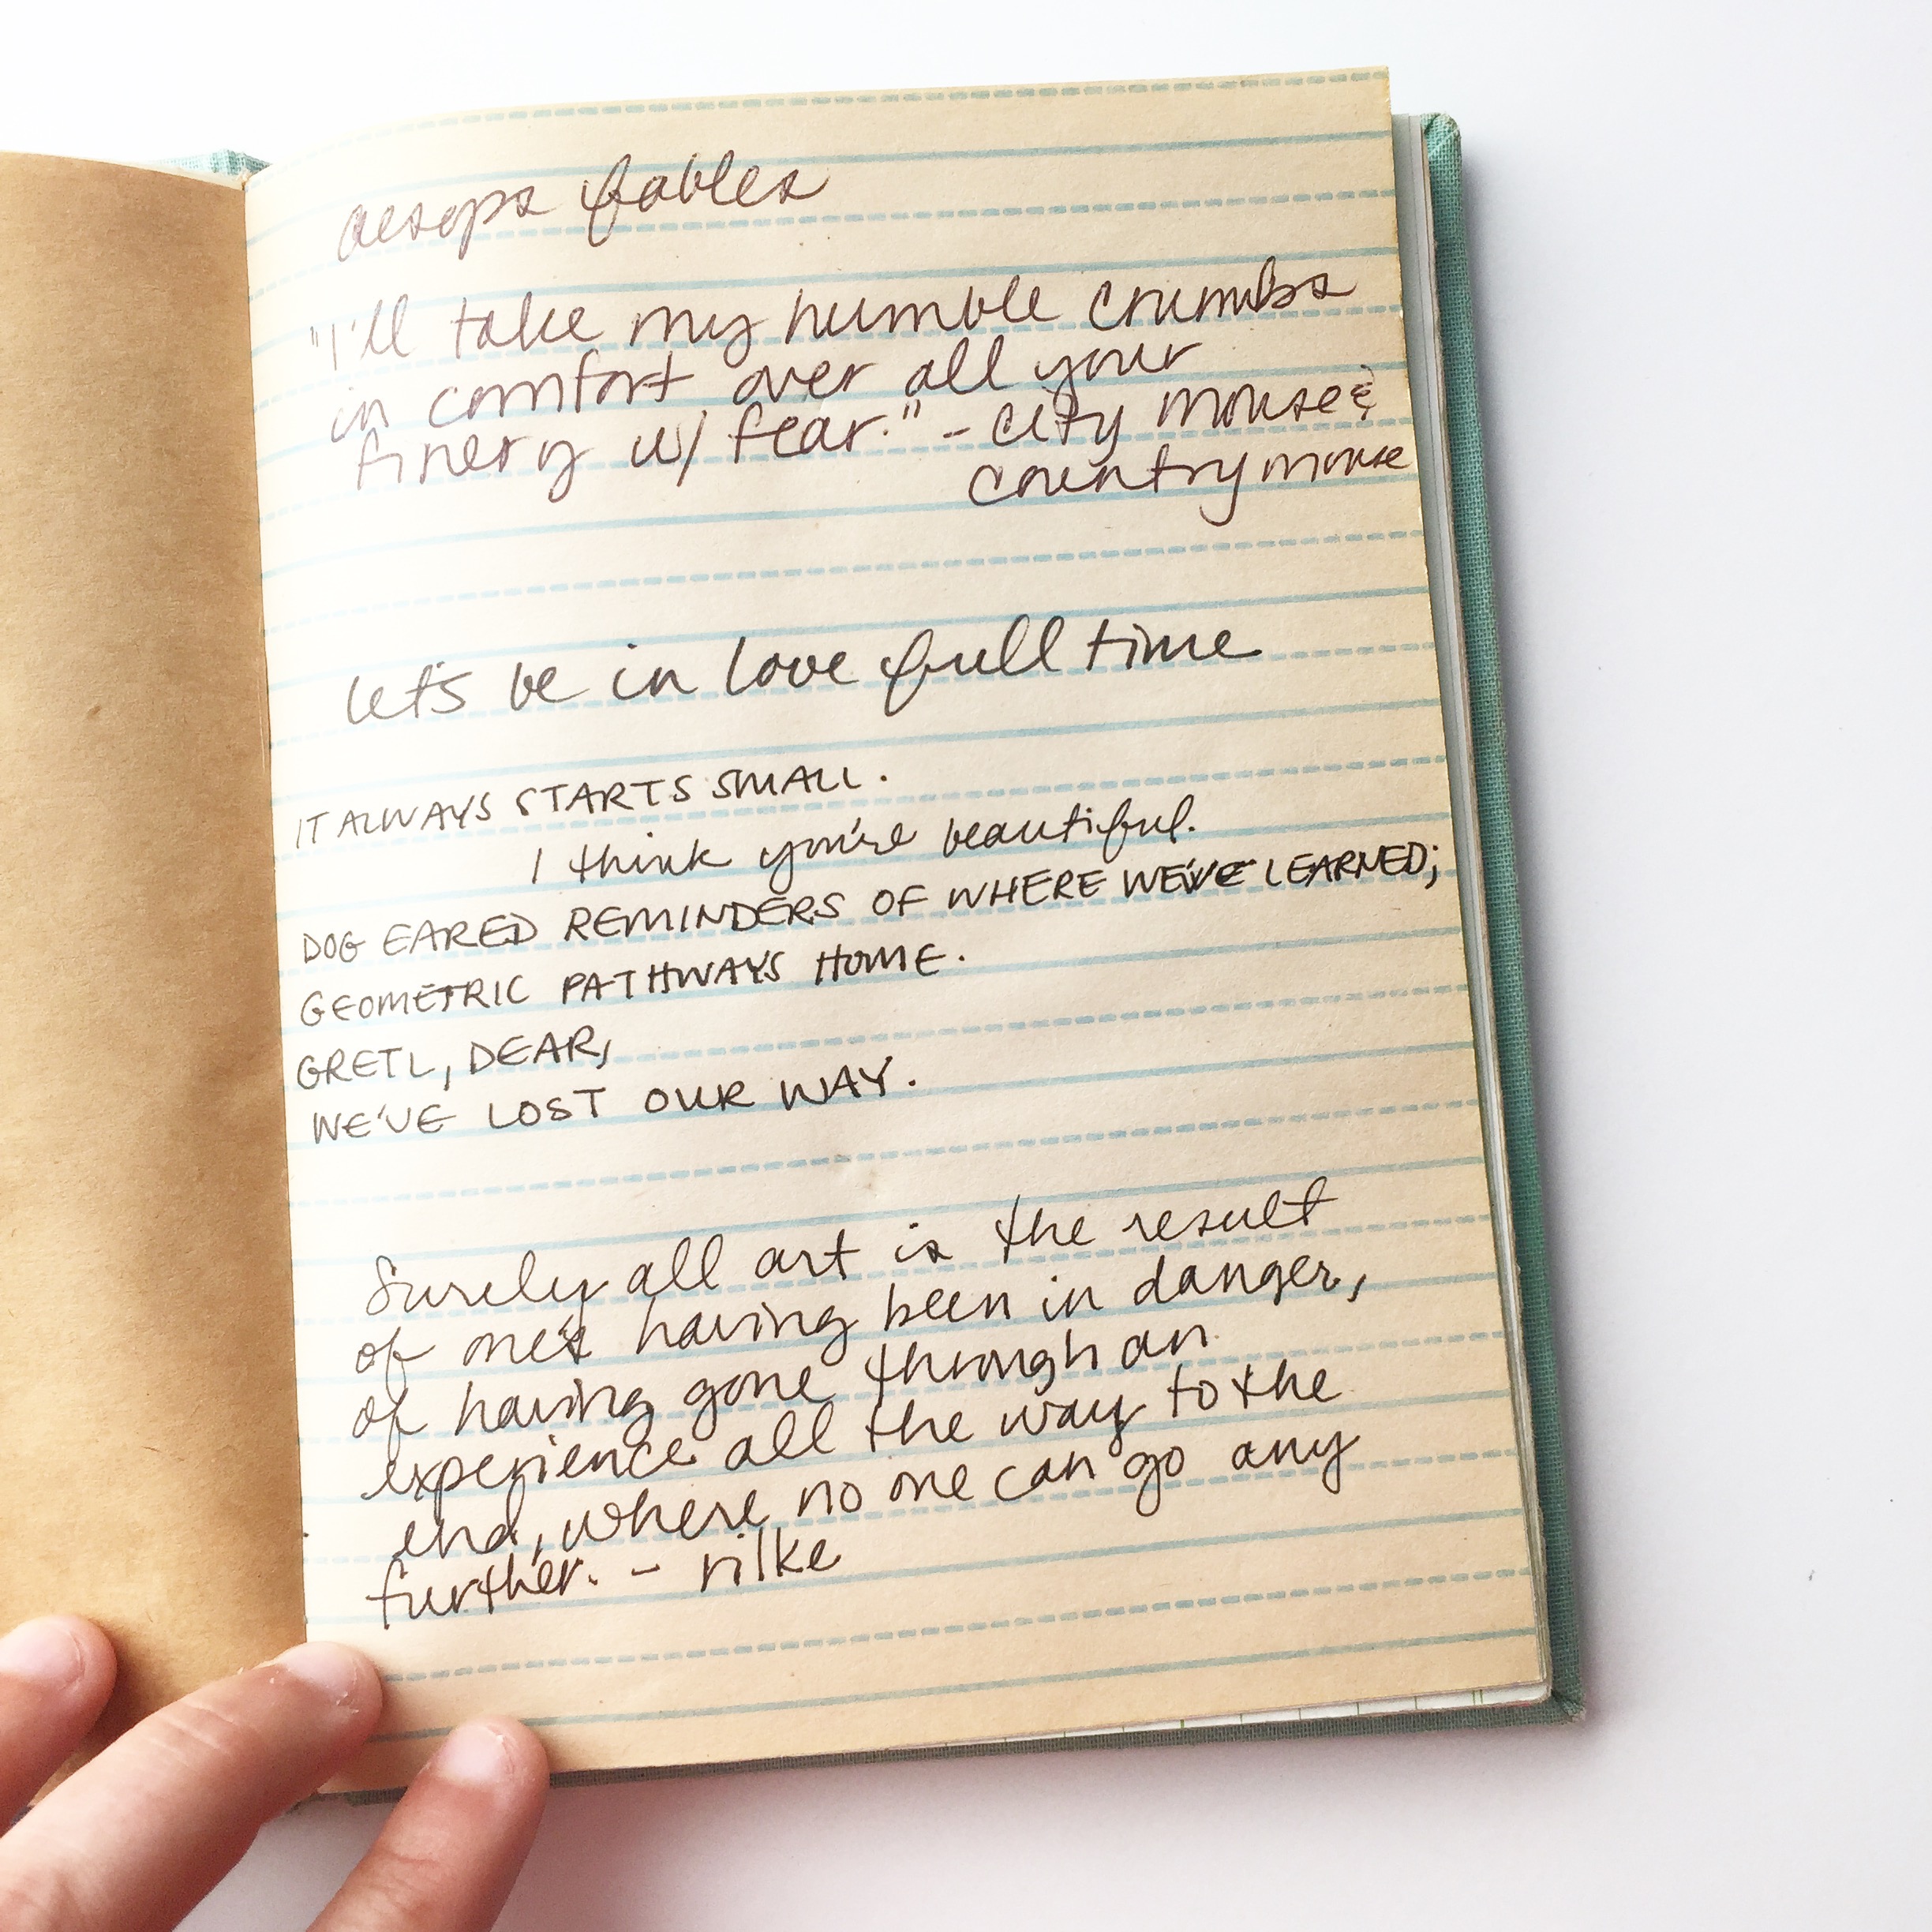 aesops fables
"I'll take my humble crumbs
in comfort over all your
finery w/ fear." - city mouse &
country mouse
let's be in love full time
IT ALWAYS STARTS SMALL.
I think you're beautiful.
DOG EARED REMINDERS OF WHERE WE'VE LEARNED;
GEOMETRIC PATHWAYS HOME.
GRETL, DEAR,
WE'VE LOST OUR WAY.
Surely all art is the result
of one's having been in danger,
of having gone through an
experience all the way to the
end, where no one can go any
further. - rilke